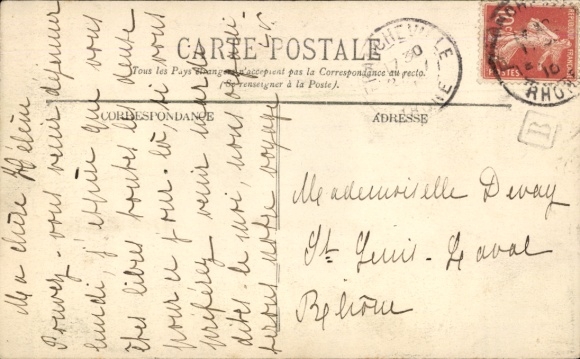 CARTE POSTALE
Tous les Pays étrangers n'acceptent pas la Correspondance au recto.
(Se renseigner à la Poste).
CORRESPONDANCE
ADRESSE
Ma chère Hélène
Pouvez-vous venir déjeuner
lundi, j'espère que vous
êtes libres toutes les deux
pour ce jour-là, si vous
préférez venir mardi
dites-le moi, nous
votre voyage
Mademoiselle Devay
St Genis-Laval
Rhône
RHONE
POSTES
10
B